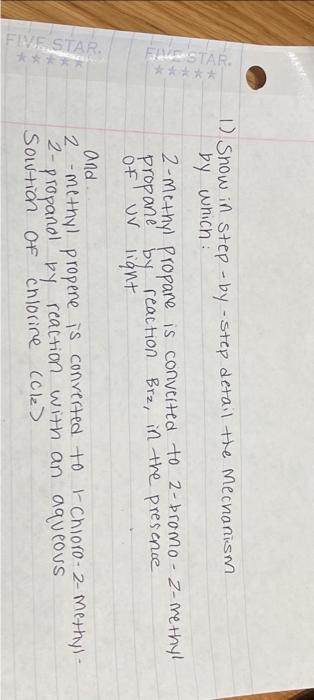 FIVE STAR.
FIVE STAR.
1) Show in step-by-step detail the Mechanism
by which:
2-methyl propane is converted to 2-bromo-2-methyl
propane by reaction Br2, in the presence
of UV light
and
2-methyl propene is converted to 1-chloro-2-methyl-
2-propanol by reaction with an aqueous
solution of chlorine (Cl2)